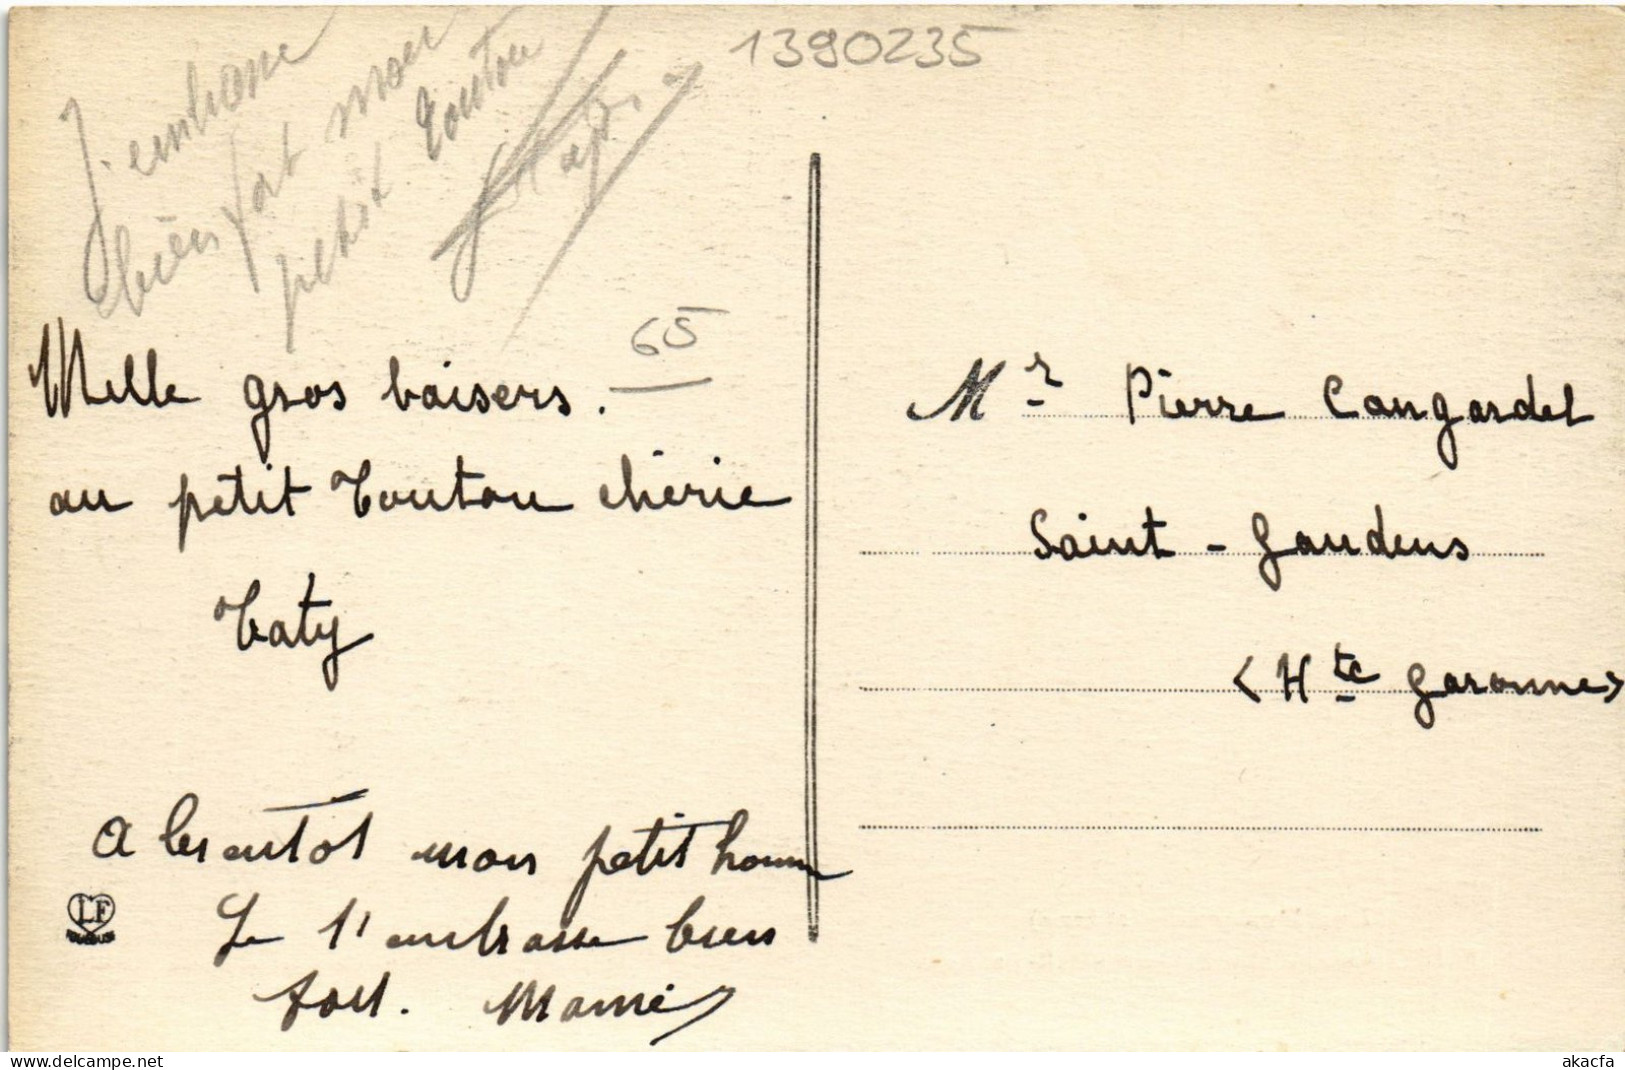 1390235
J'embrasse
bien fort mon
petit Toutou
65
Mille gros baisers.
au petit Toutou chérie
Taty
A bientot mon petit homme
Je t'embrasse bien
fort. Mamé
LF
Mr Pierre Cangardel
Saint-Gaudens
(Hte Garonne)
www.delcampe.net
akacfa